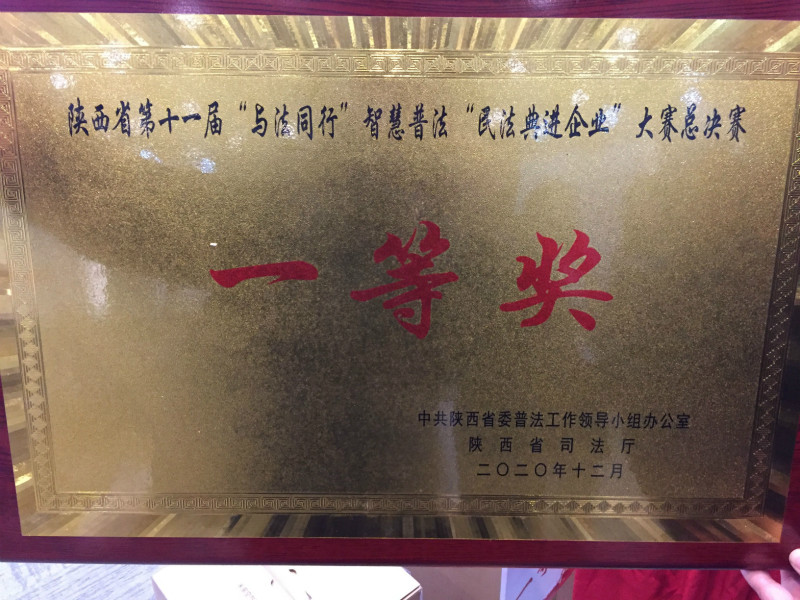 陕西省第十一届“与法同行”智慧普法“民法典进企业”大赛总决赛
一等奖
中共陕西省委普法工作领导小组办公室
陕西省司法厅
二〇二〇年十二月